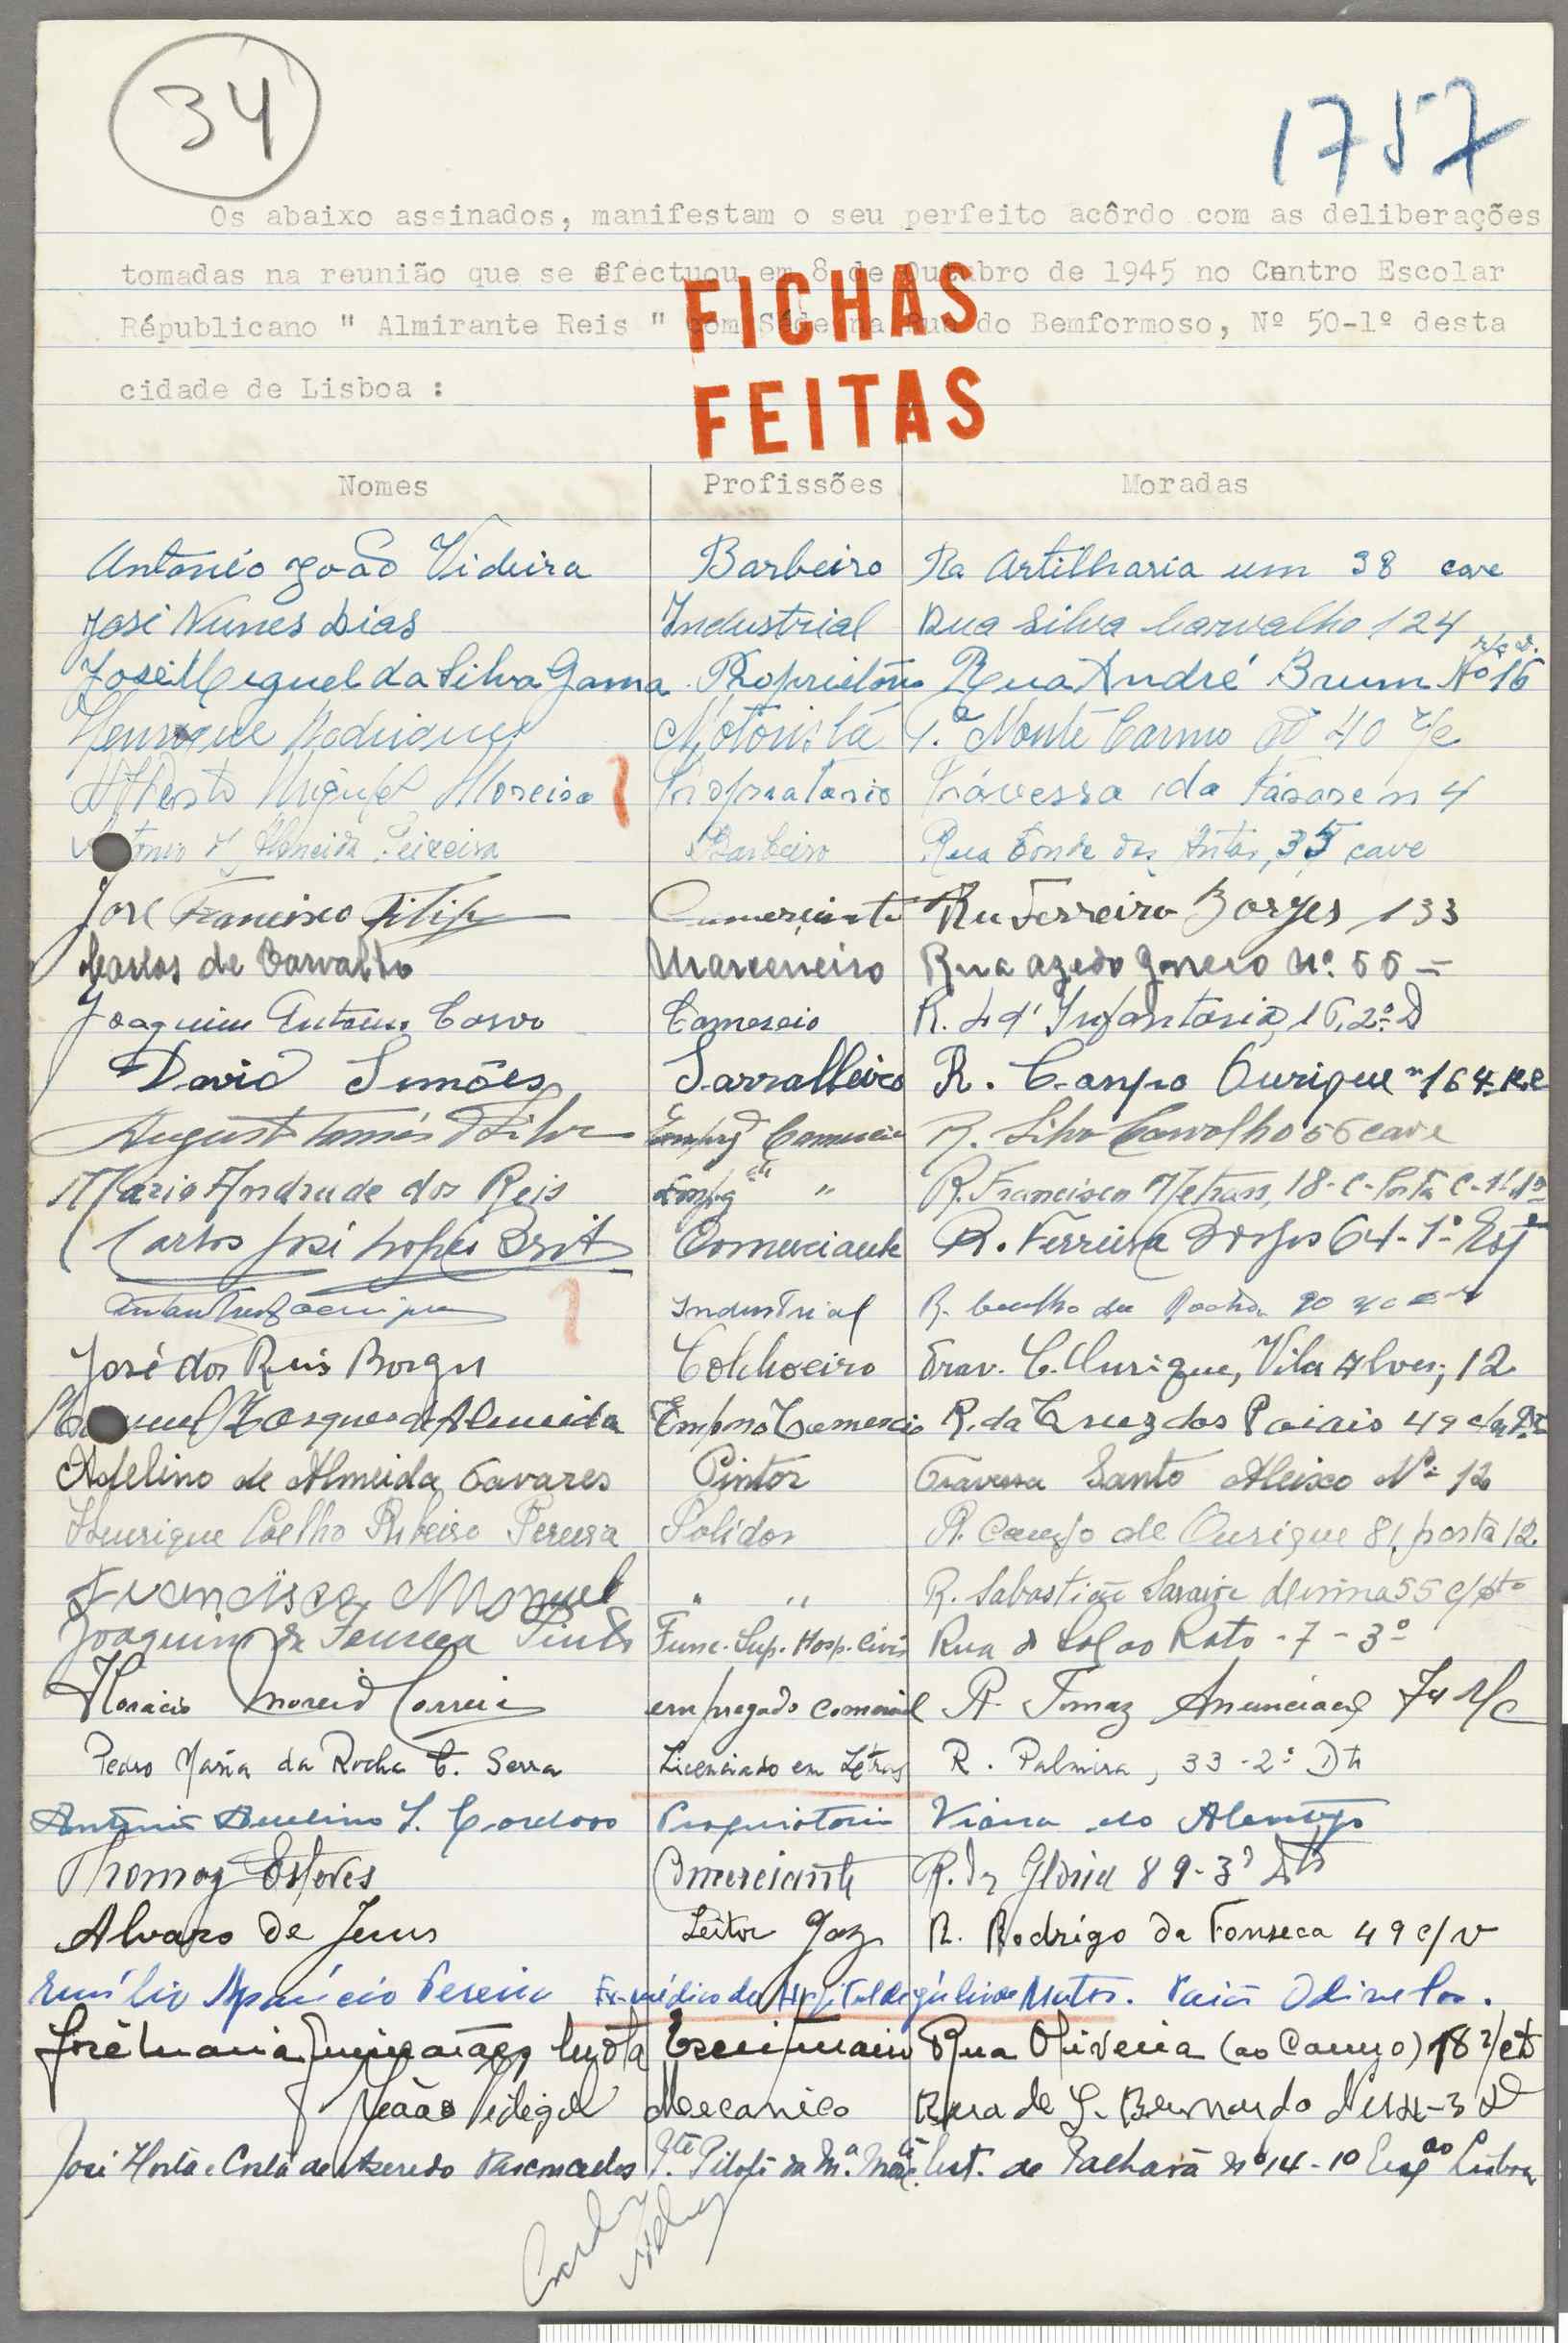 34
1757
Os abaixo assinados, manifestam o seu perfeito acôrdo com as deliberações
tomadas na reunião que se efectuou em 8 de Outubro de 1945 no Centro Escolar
Républicano " Almirante Reis " com Séde na Rua do Bemformoso, Nº 50-1º desta
cidade de Lisboa :
FICHAS
FEITAS
Nomes Profissões Moradas
Antonio João Videira Barbeiro Ra Artilharia um 38 cave
José Nunes Dias Industrial Rua Silva Carvalho 124
José Miguel da Silva Gama Proprietário Rua André Brum Nº 16 r/c d.
Henrique Rodrigues Motorista T.ª Monte Carmo 40 r/c
Alberto Miguel Moreira Propriatario Travessa do 4
Almeida Teixeira Barbeiro Rua Conde das Antas, 35 cave
José Francisco Filipe Comerciante Rua Ferreira Borges 133
Carlos de Carvalho Marceneiro Rua Azedo Gneco Nº. 55
Joaquim Antonio Comercio R. 4 d' Infantaria, 16, 2º D
David Simões Sarralheiro R. Campo Ourique nº 164 R/c
Augusto Tomás Silva Empg Comercio R. Silva Carvalho 56 cave
Mario Andrade dos Reis Empg " R. Francisco Metrass, 18-C-Porta C-
Carlos José Lopes Brito Comerciante R. Ferreira Borges 64-1º Esqº
Industrial R. Coelho da Rocha 90
José dos Reis Borges Colchoeiro Trav. C. Ourique, Vila Alves, 12
Marques de Almeida Empdo Comercio R. da Cruz dos Poiais 49
Adelino de Almeida Tavares Pintor Travessa Santo Aleixo Nº 12
Henrique Coelho Ribeiro Pereira Polidor R. Campo de Ourique 81, porta 12
Francisco Manuel " " R. Sabastião Saraiva 55
Joaquim da Fonseca Pinto Func. Sup. Hosp. Civis Rua do Sol ao Rato - 7 - 3º
Horacio Moreira Correia empregado comercial R. Tomaz Anunciação 74 r/c
Pedro Maria da Rocha C. Serra Licenciado em Letras R. Palmira, 33-2º Dto
Antonio Avelino S. Cardoso Proprietario Viana do Alentejo
Thomaz Esteves Comerciante R. da Gloria 89-3º Dto
Alvaro de Jesus Leitor Gaz R. Rodrigo da Fonseca 49 c/v
Emílio Aparício Pereira Ex-médico do Hospital de Júlio de Matos. Odivelas.
José Maria Guimarães Escriturario Rua Oliveira (ao Carmo) 18
João Vidigal Mecanico Rua de S. Bernardo
José Horta e Costa de Azeredo Vasconcelos Pte. Piloto da Mª. Est. de Palhavã nº 14-1º Esqº Lisboa